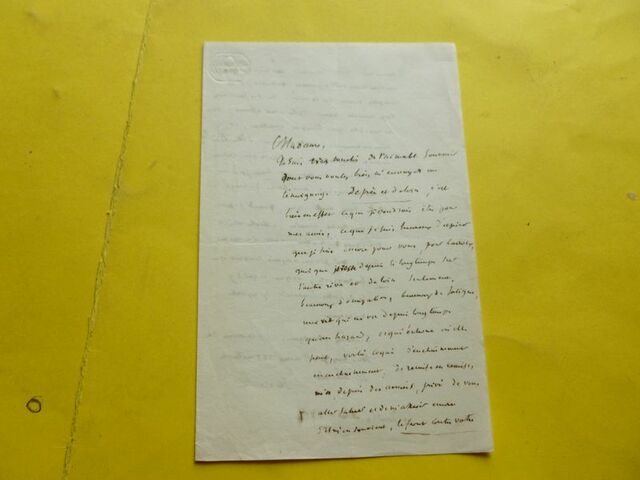 Madame,
Je suis très touché de l'aimable souvenir
dont vous voulez bien m'envoyer un
témoignage. De près et de loin, c'est
bien en effet ce que je voudrois être pour
mes amis, ce que je suis heureux d'espérer
que je suis encore pour vous, pour
quoique depuis si longtemps sur
l'autre rive et de loin seulement.
beaucoup d'occupations, beaucoup de fatigue,
une vie qui m'a depuis longtemps
qu'au hazard, ce qui entraîne où elle
peut, voilà ce qui d'enchaînement
en enchaînement, de remise en remise,
m'a depuis des années, privé de vous
aller saluer et de m'asseoir
le front contre votre